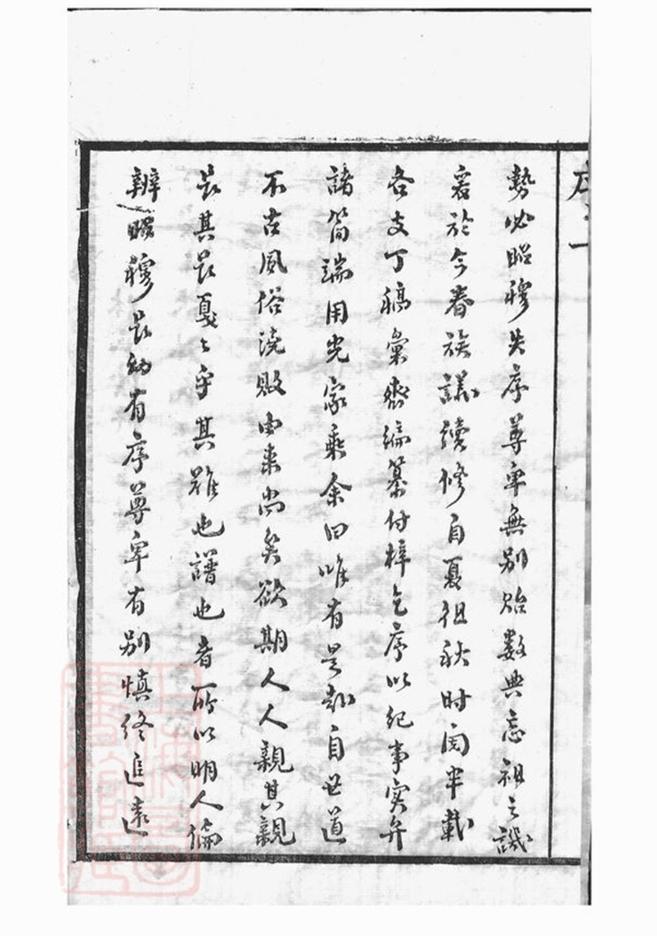 序二
勢必昭穆失序尊卑無別貽數典忘祖之譏
爰於今春族議續修自夏徂秋时閱半載
各支丁稿彙齊編纂付梓乞序以紀事實弁
諸简端用光家乘余曰唯有是哉自世道
不古風俗浇敗由来尚矣欲期人人親其親
長其長戛戛乎其難也譜也者所以明人倫
辨昭穆長幼有序尊卑有別慎终追遠